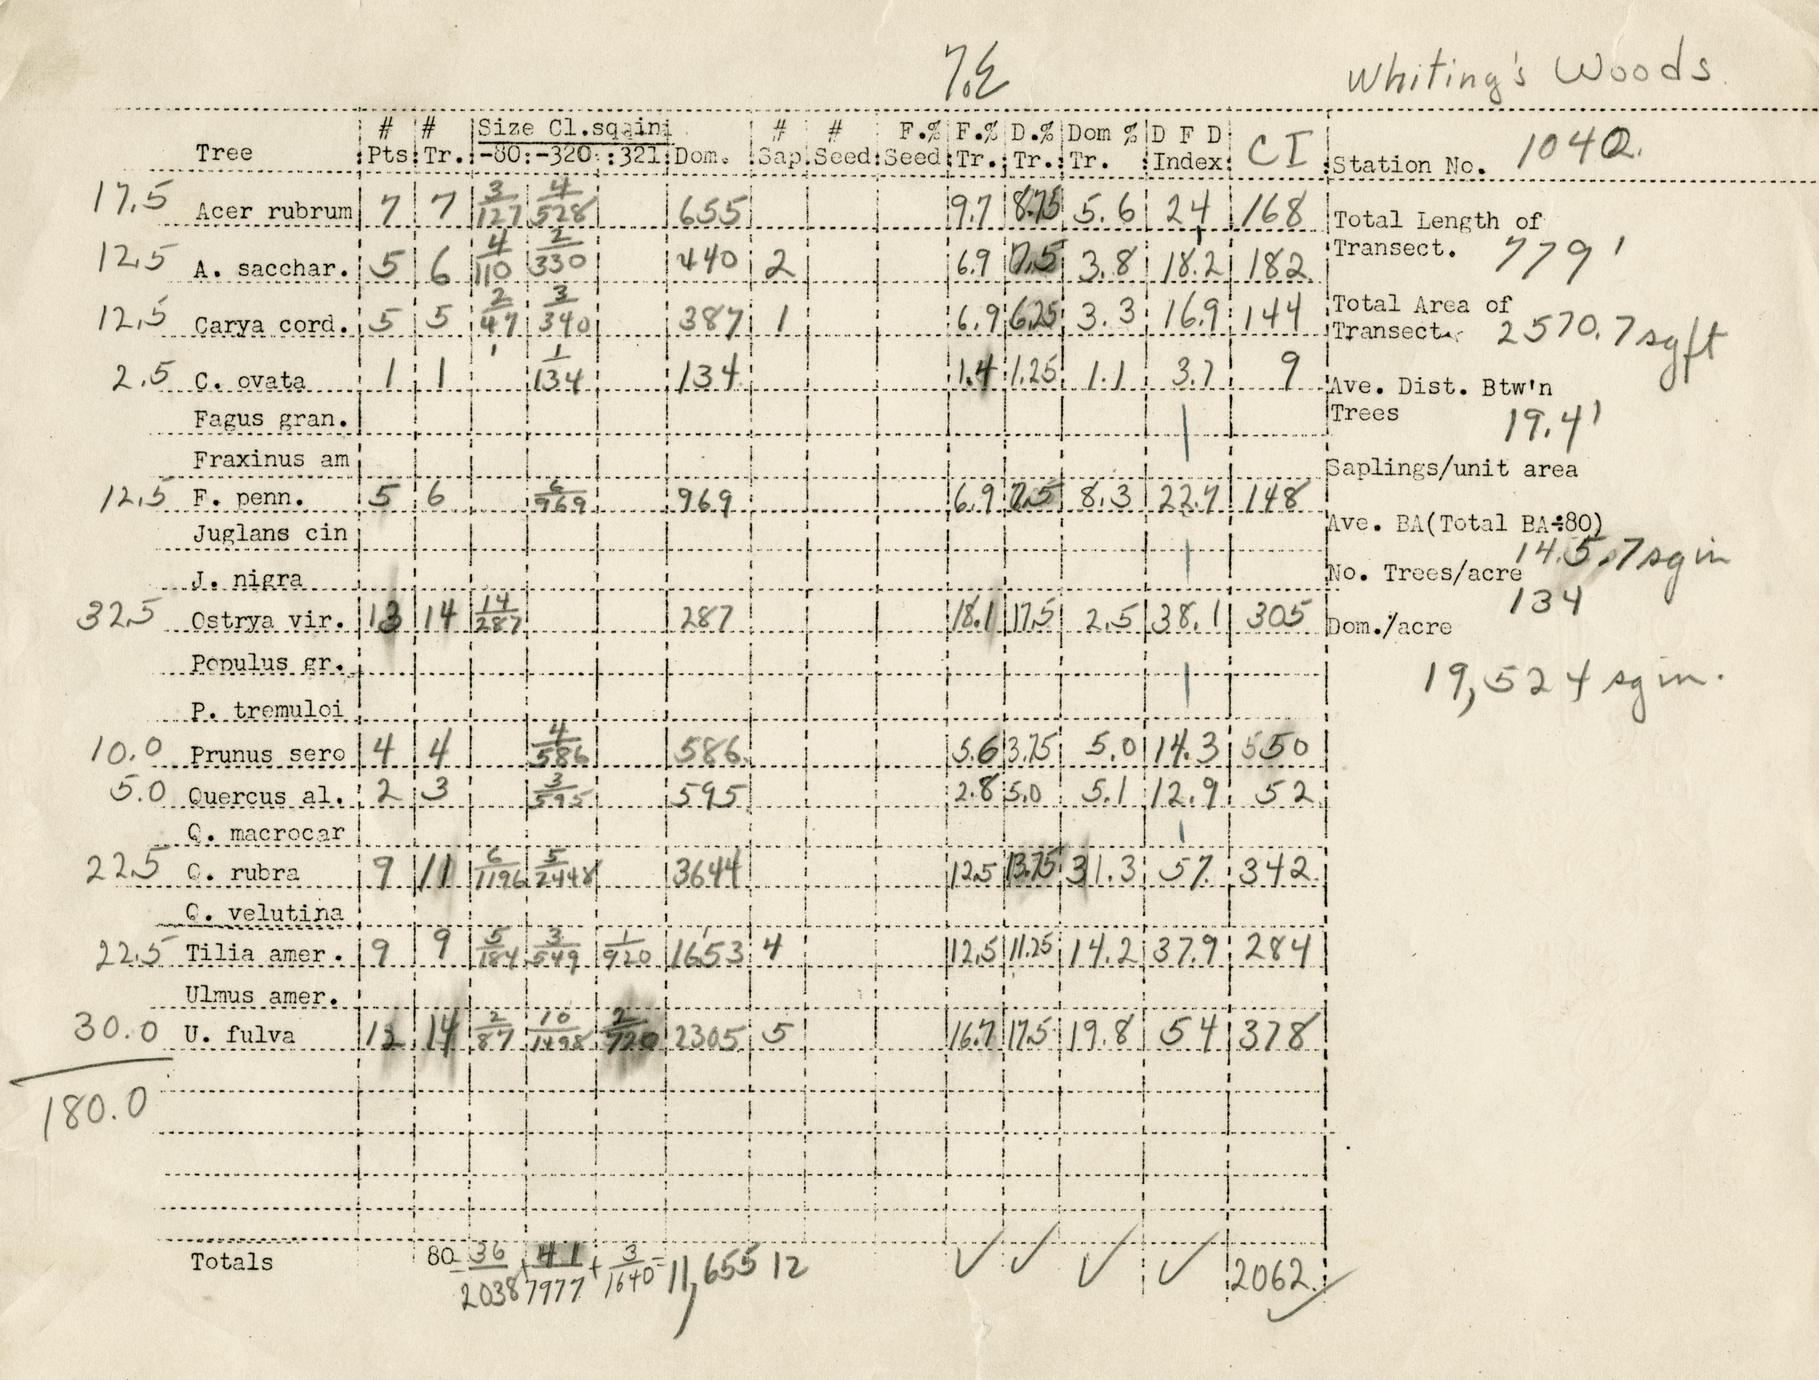 7.E Whiting's Woods
Tree # Pts # Tr. Size Cl.sqain -80 -320 321 Dom. # Sap # Seed F.% Seed F.% Tr. D.% Tr. Dom % Tr. D F D Index CI
17.5 Acer rubrum 7 7 3/127 4/528 655 9.7 8.75 5.6 24 168
12.5 A. sacchar. 5 6 4/110 2/330 440 2 6.9 7.5 3.8 18.2 182
12.5 Carya cord. 5 5 2/47 3/340 387 1 6.9 6.25 3.3 16.9 144
2.5 C. ovata 1 1 1/134 134 1.4 1.25 1.1 3.7 9
Fagus gran.
Fraxinus am
12.5 F. penn. 5 6 6/969 969 6.9 7.5 8.3 22.7 148
Juglans cin
J. nigra
32.5 Ostrya vir. 13 14 14/287 287 18.1 17.5 2.5 38.1 305
Populus gr.
P. tremuloi
10.0 Prunus sero 4 4 4/586 586 5.6 3.75 5.0 14.3 550
5.0 Quercus al. 2 3 3/595 595 2.8 5.0 5.1 12.9 52
Q. macrocar
22.5 Q. rubra 9 11 6/1196 5/2448 3644 12.5 13.75 31.3 57. 342
Q. velutina
22.5 Tilia amer. 9 9 5/184 3/549 1/920 1653 4 12.5 11.25 14.2 37.9 284
Ulmus amer.
30.0 U. fulva 12 14 2/87 10/1498 2/720 2305 5 16.7 17.5 19.8 54 378
180.0
Totals 80 = 36/2038 + 41/7977 + 3/1640 = 11,655 12 ✓ ✓ ✓ ✓ 2062 ✓
Station No. 104Q.
Total Length of
Transect. 779'
Total Area of
Transect. 2570.7 sq ft
Ave. Dist. Btw'n
Trees 19.4'
Saplings/unit area
Ave. BA(Total BA÷80)
145.7 sq in
No. Trees/acre
134
Dom./acre
19,524 sq in.